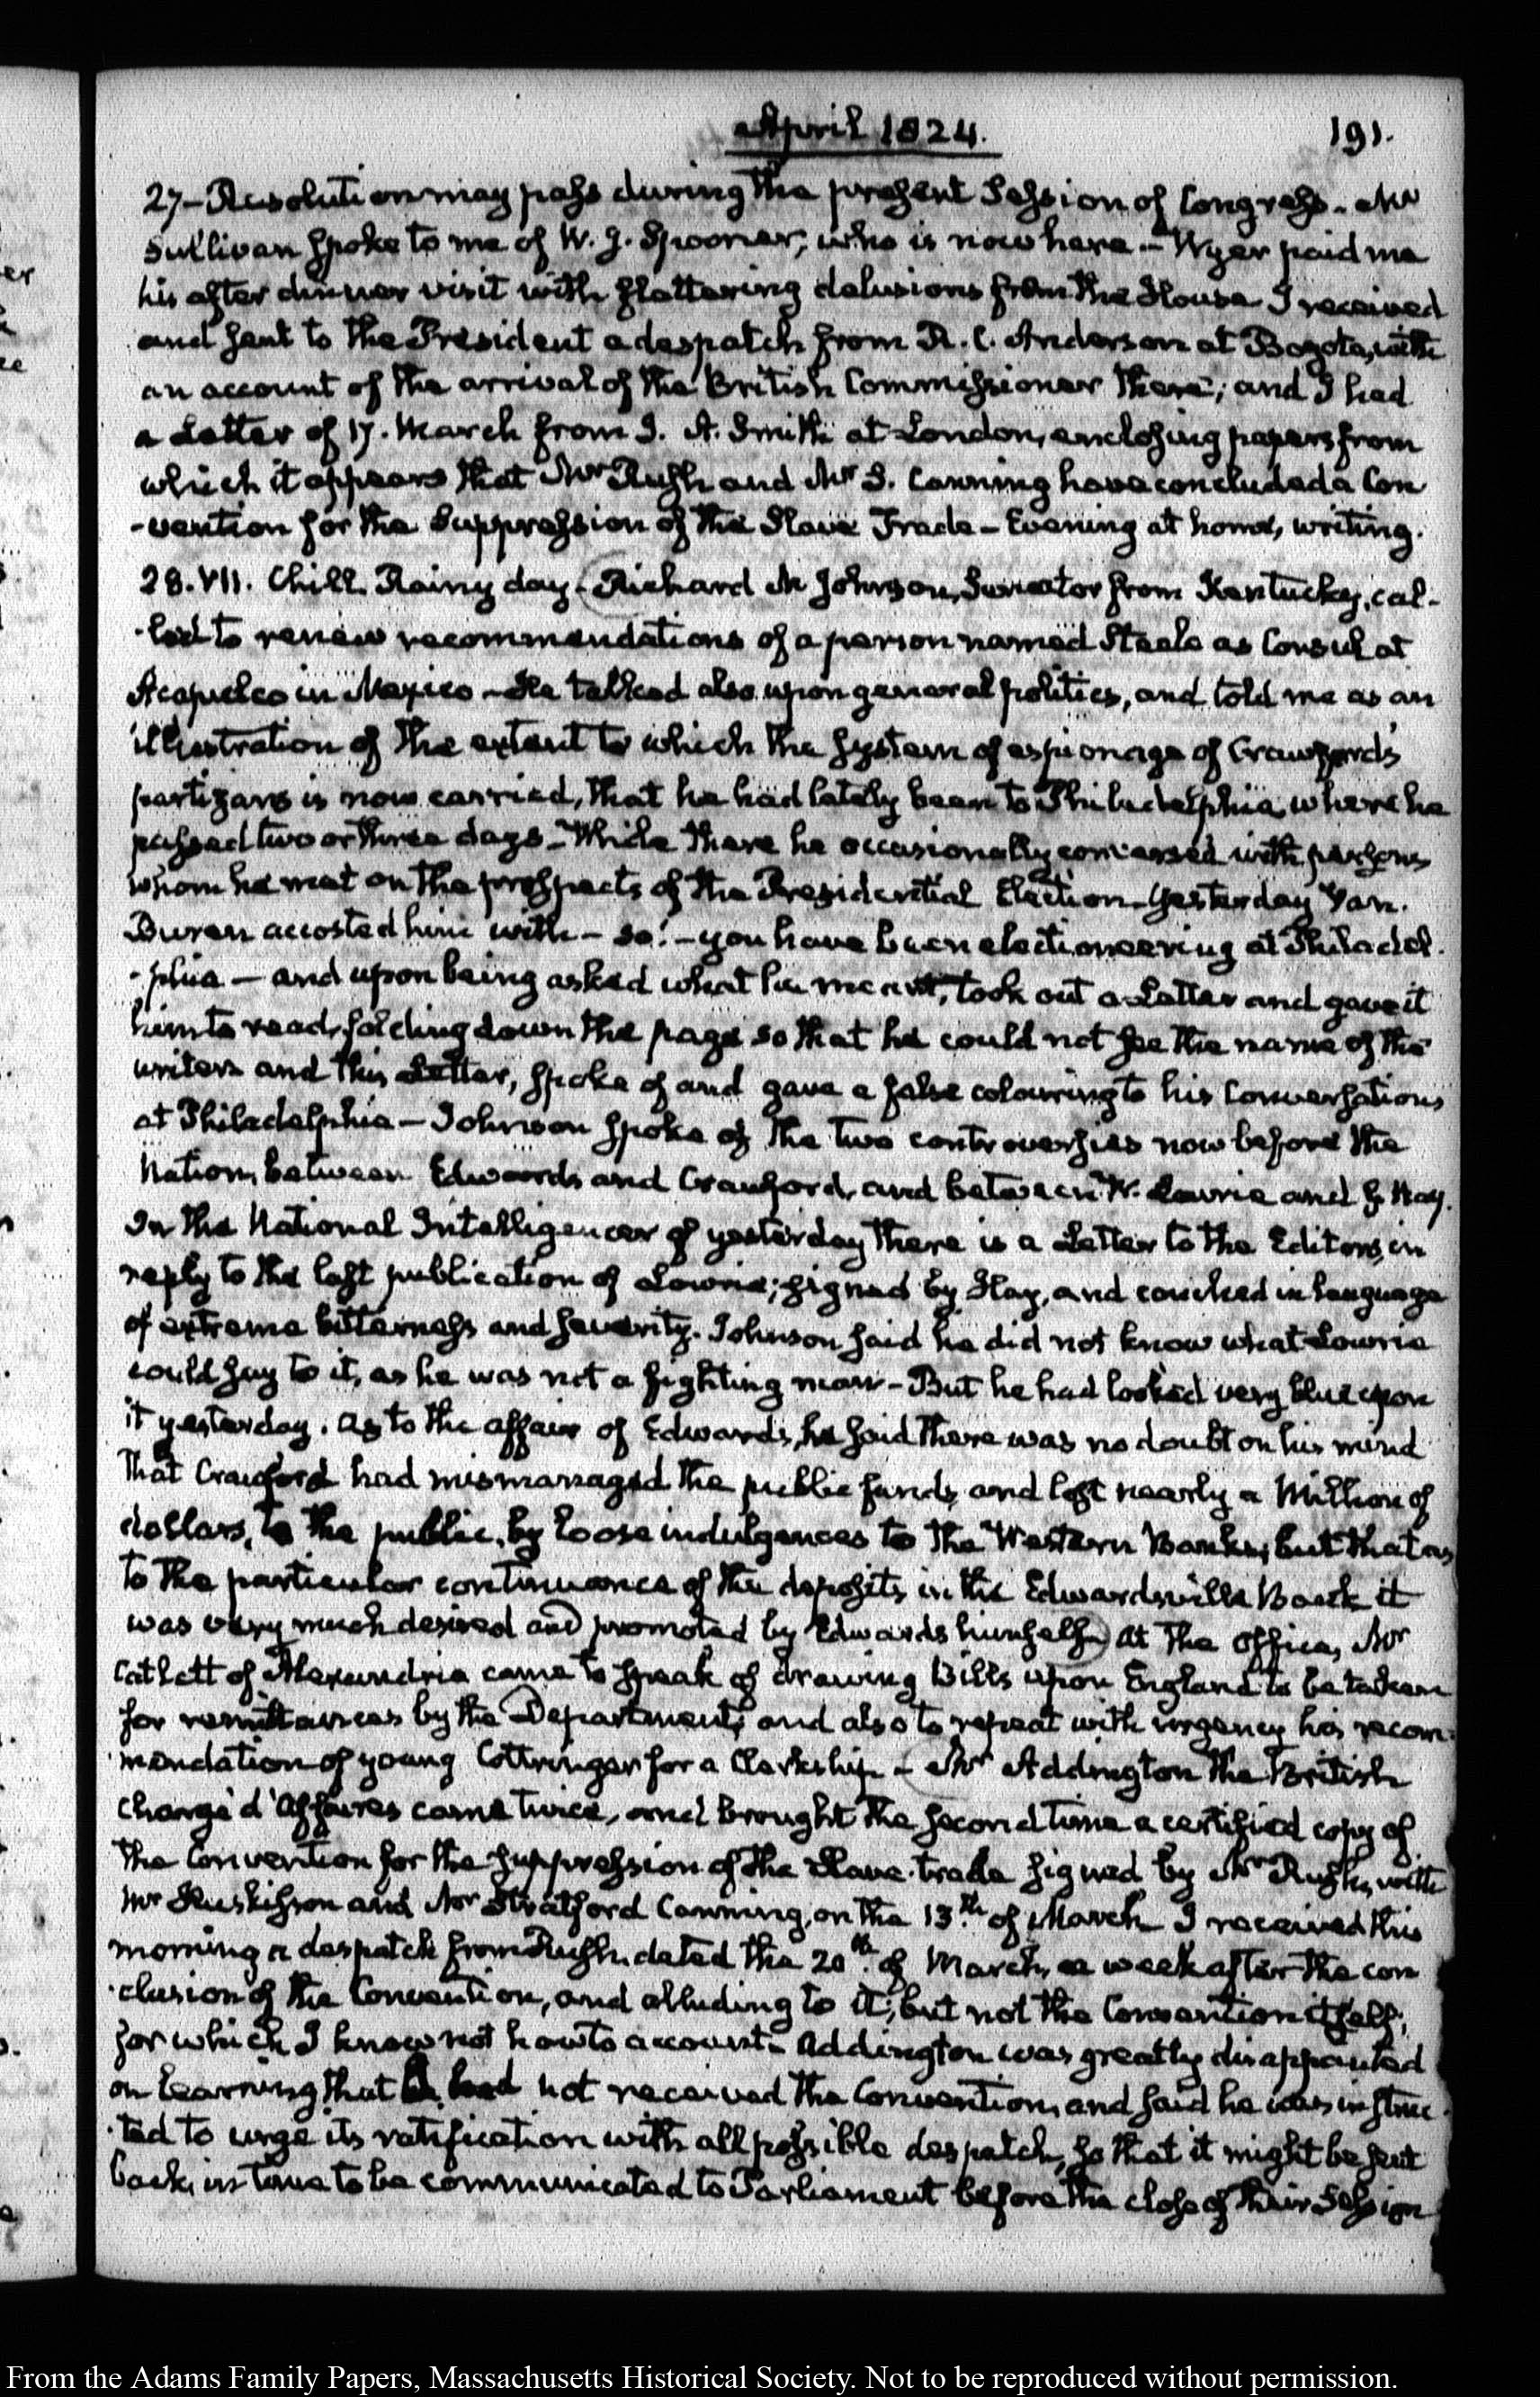 April 1824.
191.
27- Resolution may pass during the present Session of Congress. Mr
Sullivan spoke to me of W. J. Spooner, who is now here – Wyer paid me
his after dinner visit with flattering delusions from the House I received
and sent to the President a despatch from R. C. Anderson at Bogota, with
an account of the arrival of the British Commissioner there; and I had
a Letter of 17. March from J. A. Smith at London, enclosing papers from
which it appears that Mr Rush and Mr S. Canning have concluded a Con
-vention for the Suppression of the Slave Trade – Evening at home, writing.
28. VII. Chill. Rainy day. Richard M Johnson, Senator from Kentucky, cal-
-led to renew recommendations of a person named Steele as Consul at
Acapulco in Mexico – He talked also upon general politics, and told me as an
illustration of the extent to which the system of espionage of Crawford's
partizans is now carried, that he had lately been to Philadelphia where he
passed two or three days – While there he occasionally conversed with persons
whom he met on the prospects of the Presidential Election – Yesterday Van.
Buren accosted him with – so! – you have been electioneering at Philadel.
-phia – and upon being asked what he meant, took out a Letter and gave it
him to read, folding down the page so that he could not see the name of the
writer and this Letter, spoke of and gave a false colouring to his Conversations
at Philadelphia – Johnson spoke of the two controversies now before the
Nation, between Edwards and Crawford, and between W. Lowrie and G. Hay.
In the National Intelligencer of yesterday there is a Letter to the Editors, in
reply to the last publication of Lowrie; signed by Hay, and couched in language
of extreme bitterness and severity. Johnson said he did not know what Lowrie
could say to it, as he was not a fighting man – But he had looked very blue upon
it yesterday. As to the affair of Edwards, he said there was no doubt on his mind
that Crawford had mismanaged the public funds, and lost nearly a Million of
dollars, to the public, by loose indulgences to the Western Banks; but that as
to the particular continuance of the deposits in the Edwardsville Bank it
was very much desired and promoted by Edwards himself. At the Office, Mr
Catlett of Alexandria came to speak of drawing Bills upon England to be taken
for remittances by the Department, and also to repeat with urgency his recom-
mendation of young Cottringer for a Clerkship – Mr Addington the British
Chargé d'Affaires came twice, and brought the second time a certified copy of
the Convention for the suppression of the Slave-trade signed by Mr Rush, with
Mr Huskisson and Mr Stratford Canning, on the 13th. of March I received this
morning a despatch from Rush, dated the 20th. of March, a week after the con
-clusion of the Convention, and alluding to it; but not the Convention itself;
for which I know not how to account – Addington was greatly disappointed
on learning that I had not received the Convention, and said he was instruc-
-ted to urge its ratification with all possible despatch, so that it might be sent
back, in time to be communicated to Parliament before the close of their Session
From the Adams Family Papers, Massachusetts Historical Society. Not to be reproduced without permission.